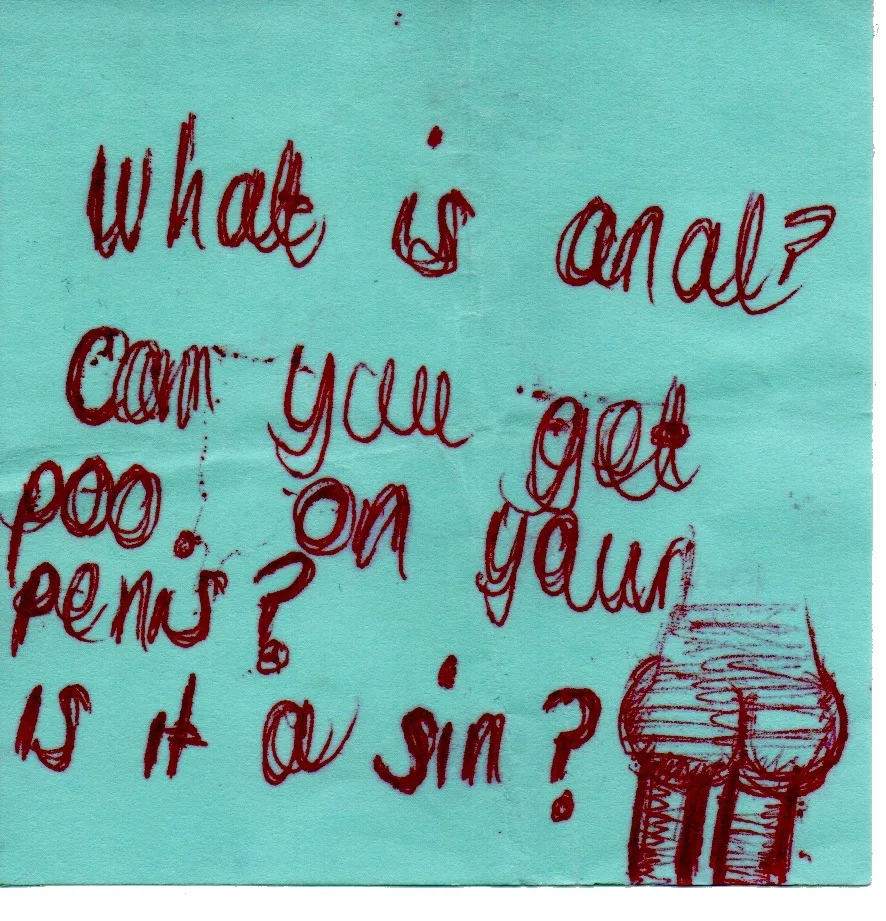 What is anal?
Can you get
poo. on your
penis?
is it a sin?